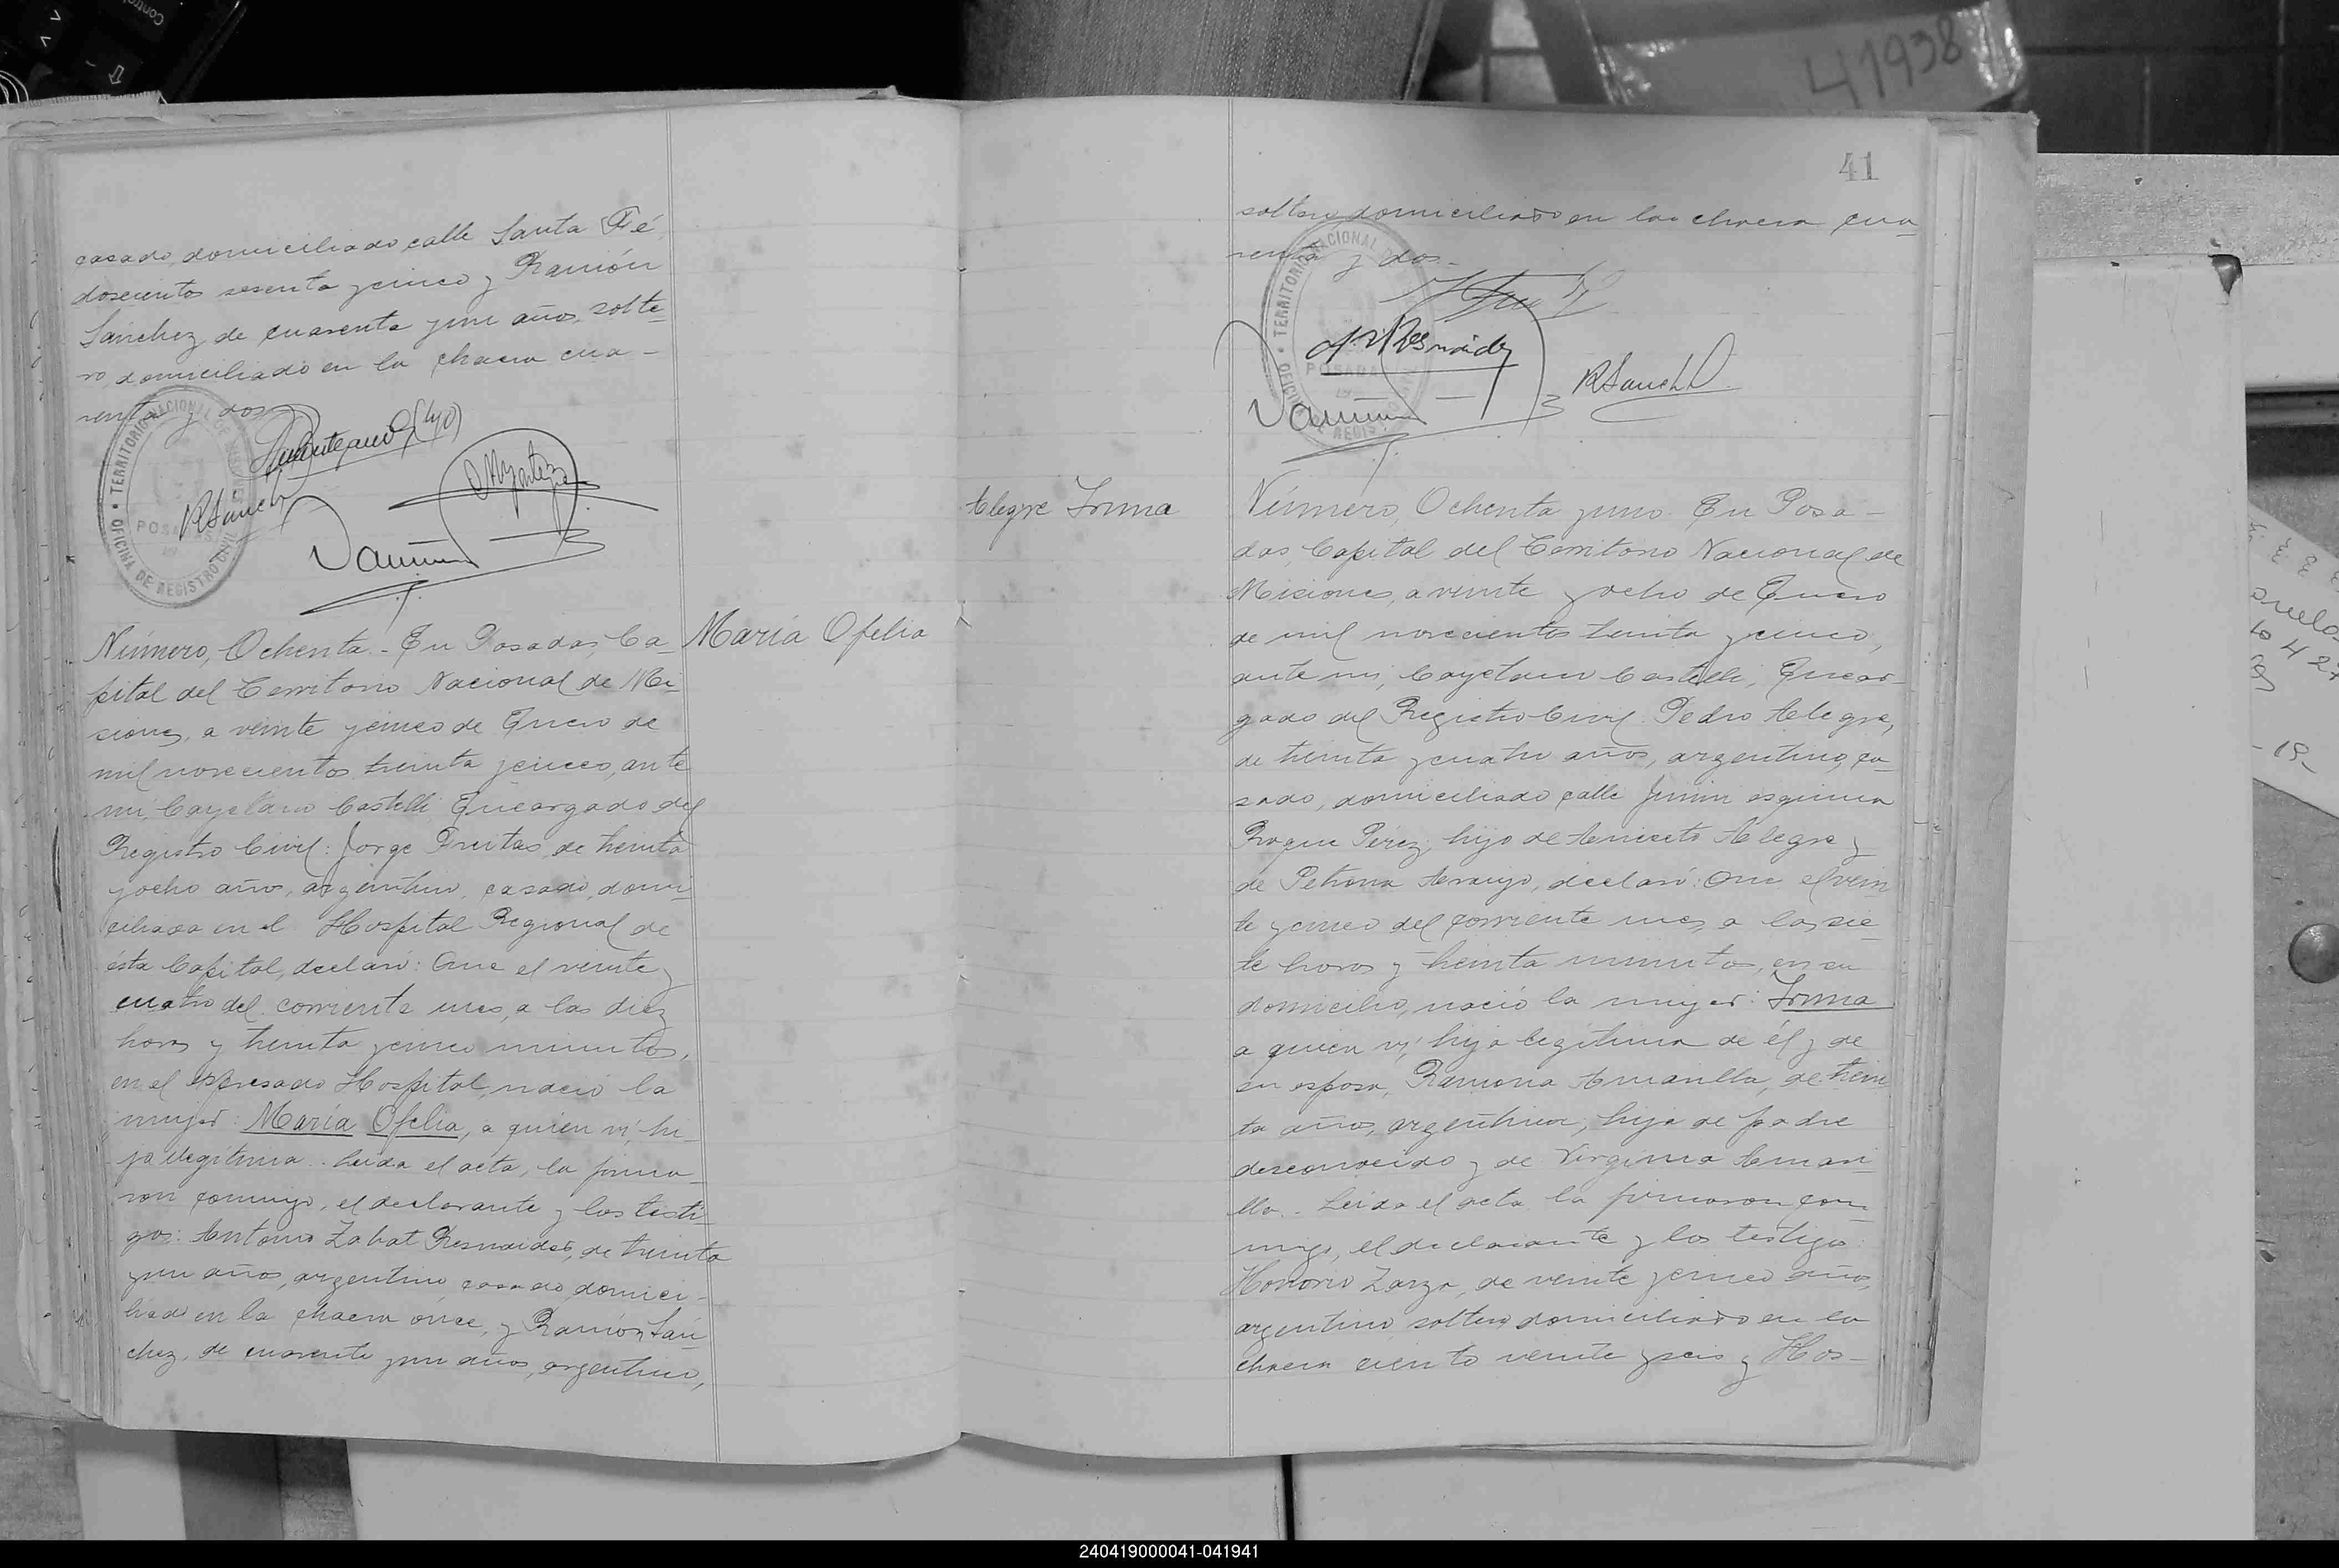 casado, domiciliado, calle Santa Fé
doscientos sesenta y cinco y Ramón
Sánchez, de cuarenta y un años, solte-
ro, domiciliado en la chacra cua-
renta y dos
OFICINA DE REGISTRO CIVIL • TERRITORIO NACIONAL DE MISIONES
POSADAS
RSanch
Número, Ochenta.- En Posadas, Ca-
pital del Territorio Nacional de Mi-
siones, a veinte y cinco de Enero de
mil novecientos treinta y cinco, ante
mi, Cayetano Castelli Encargado del
Registro Civil: Jorge Freitas, de treinta
y ocho años, argentino, casado, domi-
ciliado en el Hospital Regional de
ésta Capital, declaró: Que el veinte y
cuatro del corriente mes, a las diez
horas y treinta y cinco minutos,
en el expresado Hospital, nació la
mujer: María Ofelia, a quien ví, hi-
ja ilegítima.. Leida el acta, la firma-
ron conmigo, el declarante y los testi-
gos: Antonio Zabat Resnaides, de treinta
y un años, argentino, casado, domici-
liado en la chacra once, y Ramón Sán-
chez, de cuarenta y un años, argentino,
María Ofelia
41
soltero, domiciliado en la chacra cua-
renta y dos.-
OFICINA DE REGISTRO CIVIL • TERRITORIO NACIONAL DE
POSADAS
RSanch
Alegre Irma
Número, Ochenta y uno. En Posa-
das, Capital del Territorio Nacional de
Misiones, a veinte y ocho de Enero
de mil novecientos treinta y cinco,
ante mi, Cayetano Castelli, Encar-
gado del Registro Civil: Pedro Alegre,
de treinta y cuatro años, argentino, ca-
sado, domiciliado calle Junin esquina
Roque Pérez, hijo de Aniceto Alegre y
de Petrona Araujo, declaró: Que el vein
te y cinco del corriente mes, a las sie-
te horas y treinta minutos, en su
domicilio, nació la mujer: Irma
a quien ví, hija legítima de él y de
su esposa, Ramona Amarilla, de trein
ta años, argentina, hija de padre
desconocido y de Virginia Amari-
lla.. Leida el acta la firmaron con-
migo, el declarante y los testigos:
Honorio Zarza, de veinte y cinco años,
argentino, soltero, domiciliado en la
chacra ciento veinte y seis y Hos-
41938
240419000041-041941